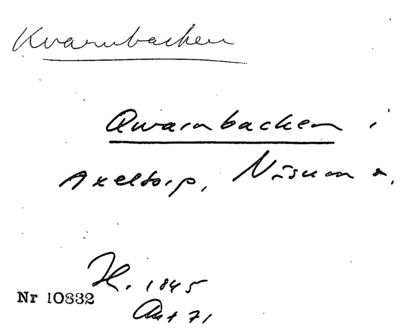 Kvarnbacken
Qwarnbacken i
Axeltorp, Näsum s.
H. 1845
Nr 10832
Akt 71